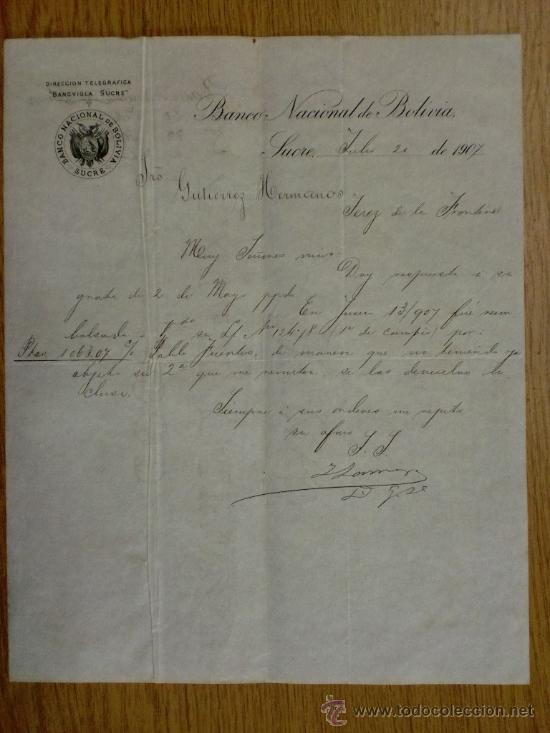 DIRECCION TELEGRAFICA
"BANCVIOLA SUCRE"
BANCO NACIONAL DE BOLIVIA
SUCRE
Banco Nacional de Bolivia.
Sucre, Julio 20 de 1907
Gutierrez Hermanos
Jerez de la Frontera
Muy Señores mios
Doy respuesta a su
grata de 2 de Mayo ppdo
En junio 13/907 fué reem
bolsada su 1ª de cambio por
Ptas 1063.07 Pablo Fuentes, de manera que no teniendo ya
objeto su 2ª que me remiten, se las devuelvo in
clusa.
Siempre á sus ordenes me repito
su afmo S. S.
www.todocoleccion.net